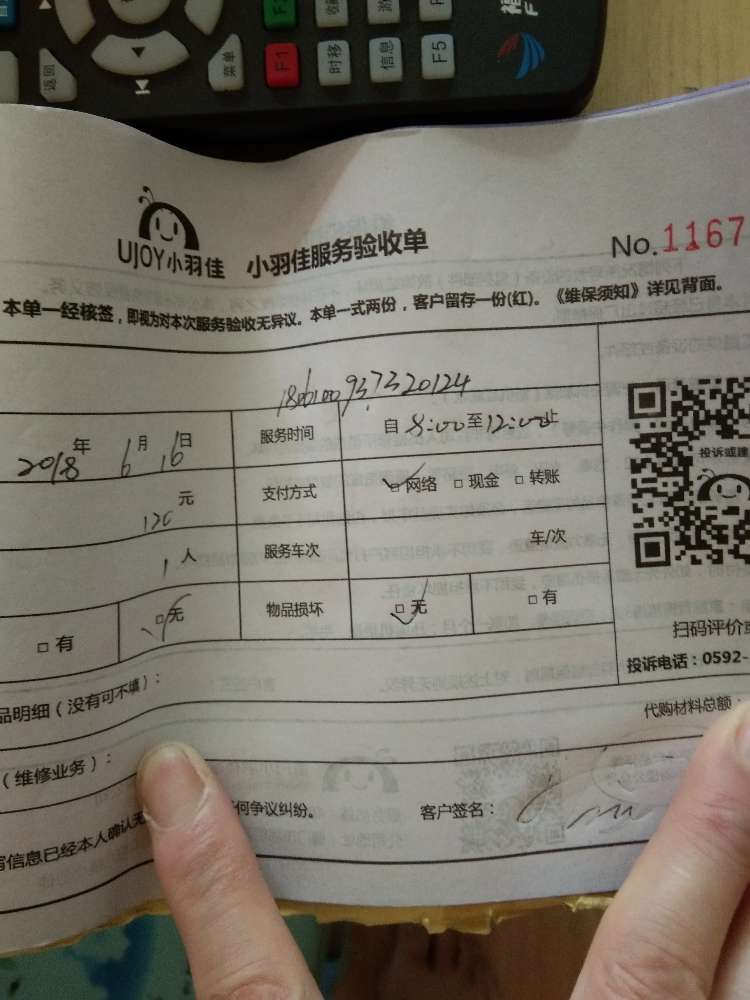 返回
菜单
F1
时移
信息
F5
UJOY小羽佳 小羽佳服务验收单 No.1167
本单一经核签,即视为对本次服务验收无异议。本单一式两份,客户留存一份(红)。《维保须知》详见背面。
2018年6月16日 服务时间 自8:00至12:00止
120元 支付方式 □网络 □现金 □转账
1人 服务车次 车/次
□有 □无 物品损坏 □无 □有
投诉或建
扫码评价或
投诉电话:0592-
品明细(没有可不填):
代购材料总额:
(维修业务):
信息已经本人确认无 何争议纠纷。 客户签名: